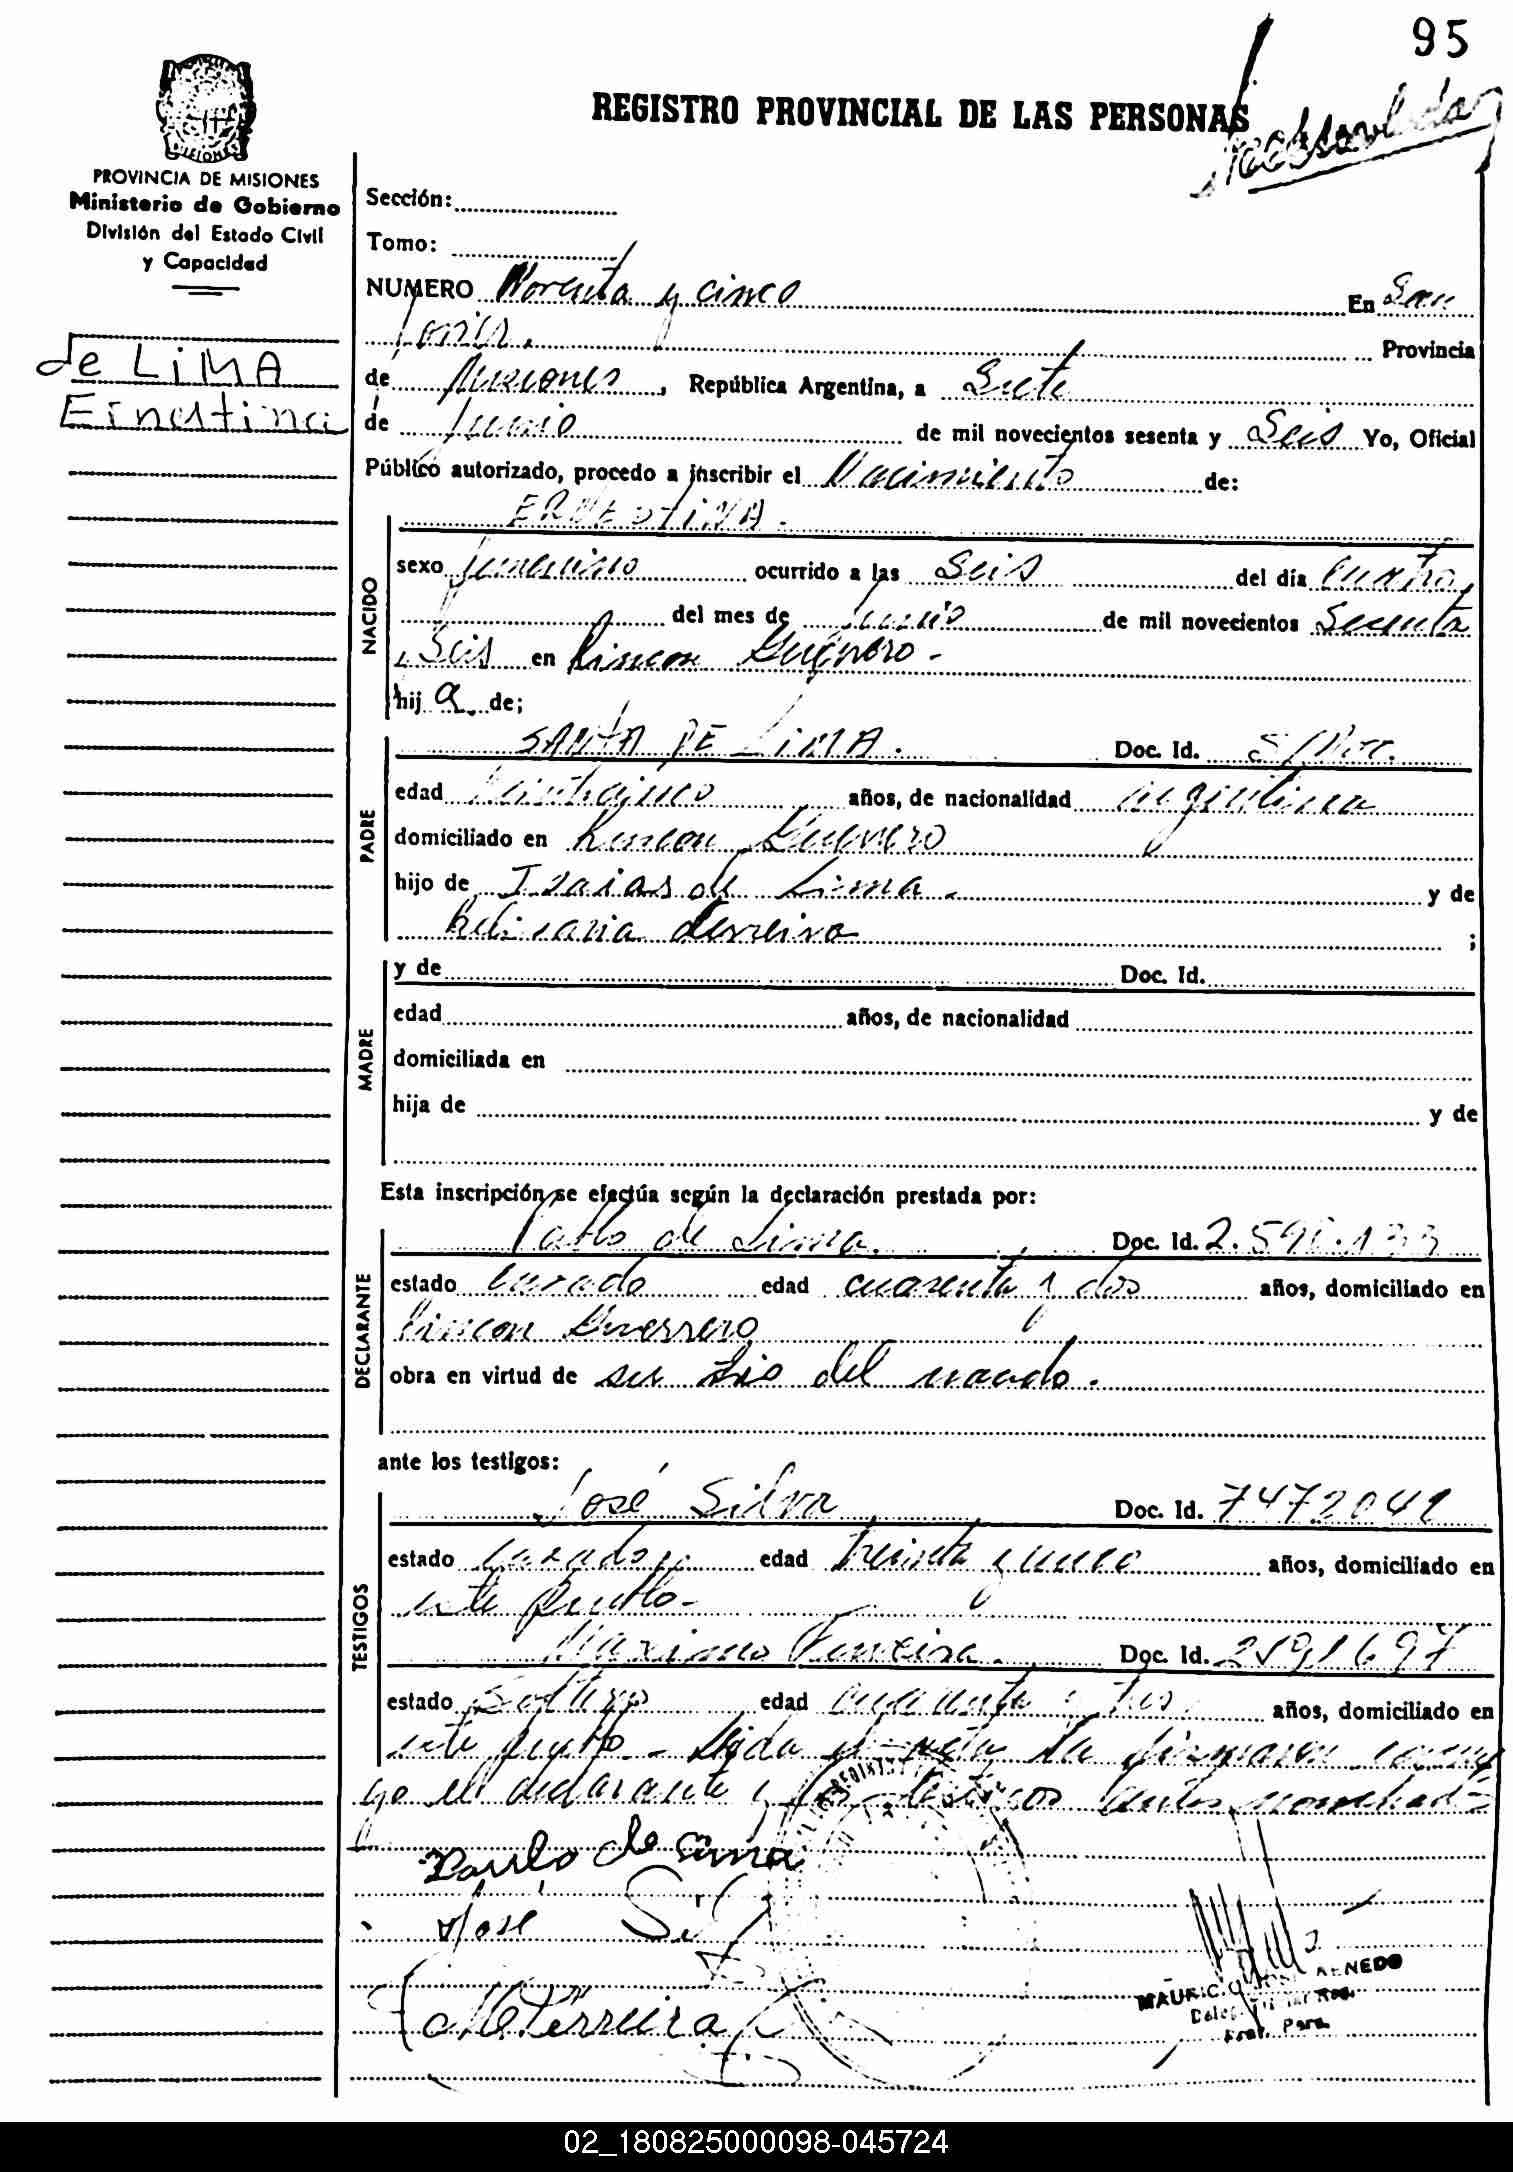 95
REGISTRO PROVINCIAL DE LAS PERSONAS
MISIONES
PROVINCIA DE MISIONES
Ministerio de Gobierno
División del Estado Civil
y Capacidad
de LiMA
Ernestina
Sección:
Tomo:
NUMERO Noventa y cinco En San
Javier. Provincia
de Misiones, República Argentina, a Siete
de junio de mil novecientos sesenta y Seis Yo, Oficial
Público autorizado, procedo a inscribir el Nacimiento de:
NACIDO
ERNESTINA.
sexo femenino ocurrido a las Seis del día cuatro
del mes de junio de mil novecientos Sesenta
y Seis en Rincon Guerrero.-
hija de;
PADRE
SANTA DE LIMA. Doc. Id. S/Doc.
edad años, de nacionalidad argentina
domiciliado en Rincon Guerrero
hijo de Izaias de Lima. y de
Belisaria Ferreira ;
MADRE
y de Doc. Id.
edad años, de nacionalidad
domiciliada en
hija de y de
Esta inscripción se efectúa según la declaración prestada por:
DECLARANTE
Pablo de Lima. Doc. Id. 2.
estado casado edad cuarenta y dos años, domiciliado en
Rincon Guerrero
obra en virtud de ser tio del nacido.
ante los testigos:
TESTIGOS
José Silva Doc. Id. 7472042
estado casado edad treinta y cinco años, domiciliado en
este pueblo-
Maximo Ferreira. Doc. Id.
estado Soltero edad cuarenta y tres. años, domiciliado en
este pueblo.- Leida el acta la firmaron conmi
go el declarante y los testigos antes nombrados
Paulo de Lima
José Sil
Ferreira
MAURICIO
02_180825000098-045724